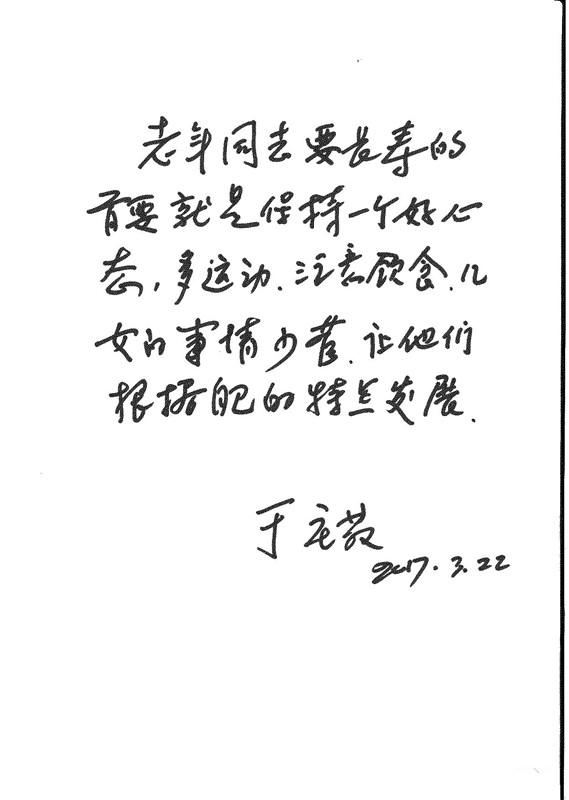 老年同志要长寿的
首要就是保持一个好心
态,多运动.注意饮食.儿
女的事情少管.让他们
根据自己的特点发展.
于庄敬
2017.3.22